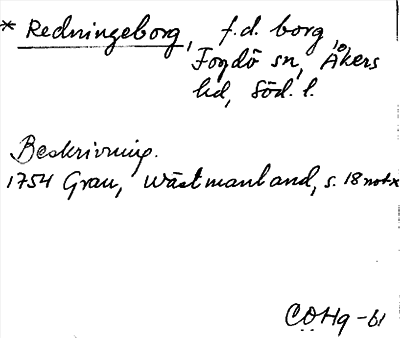 * Redningeborg, f.d. borg,
Fogdö sn, Åkers
hd, Söd. l.
Beskrivning.
1754 Grau, Wästmanland, s. 18 not x
COHg -61